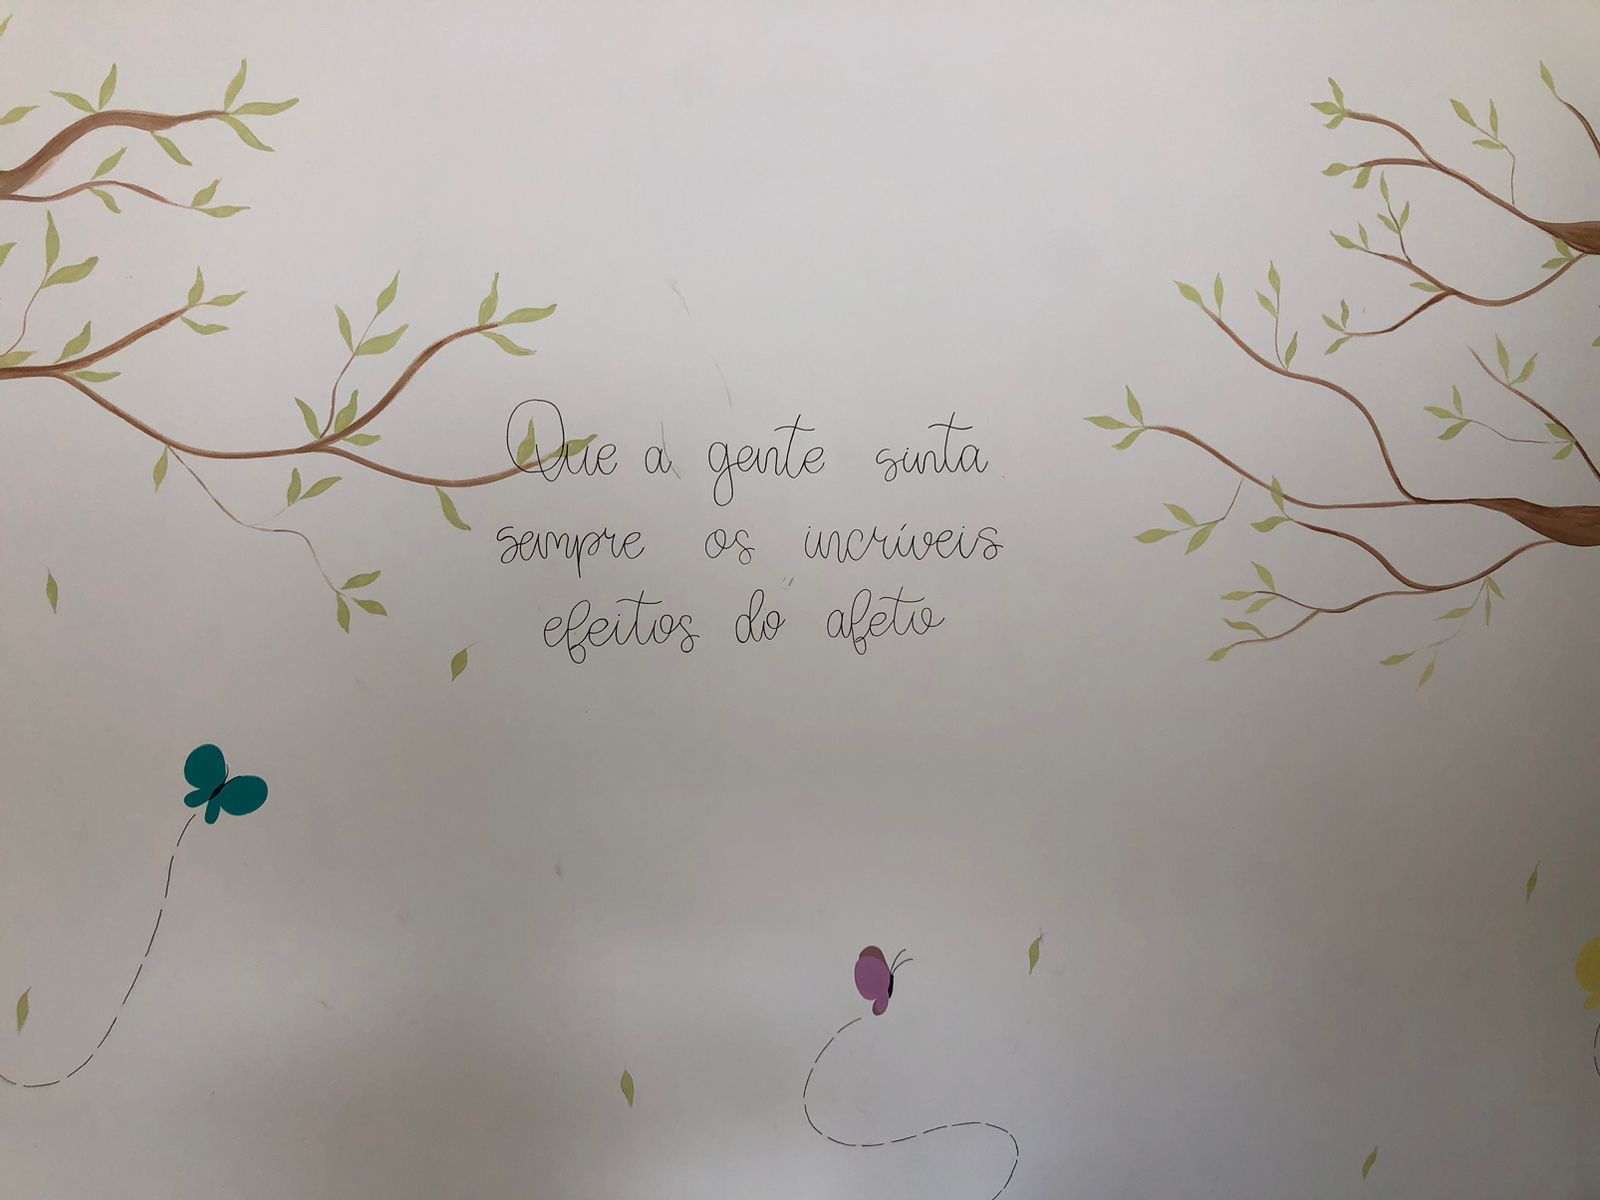 Que a gente sinta
sempre os incríveis
efeitos do afeto